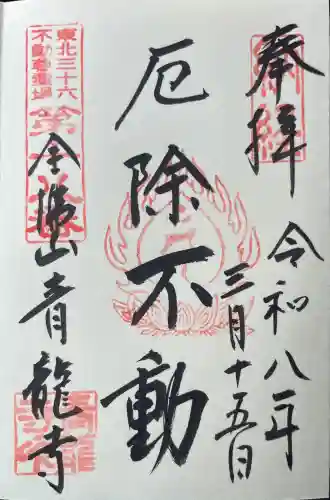 奉拝
令和八年
三月十五日
厄除不動
東北三十六
不動尊霊場
金勝山青龍寺